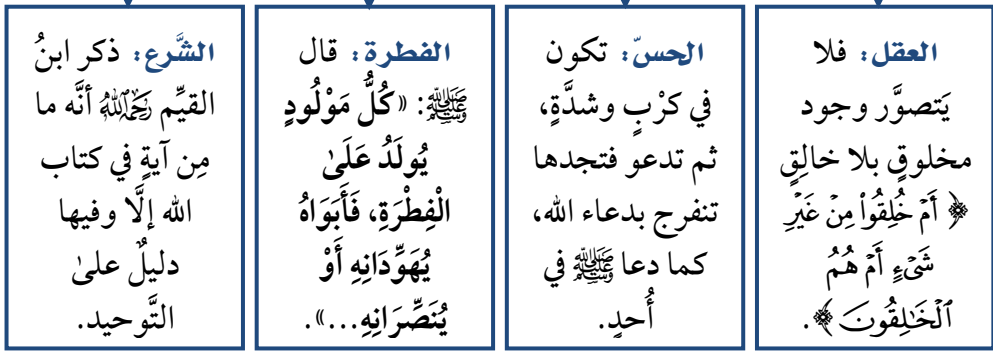 العقل: فلا
يَتصوَّر وجود
مخلوقٍ بلا خالِقٍ
﴿ أَمۡ خُلِقُواْ مِنۡ غَيۡرِ
شَيۡءٍ أَمۡ هُمُ
ٱلۡخَٰلِقُونَ ﴾.
الحسّ: تكون
في كرْبٍ وشدَّةٍ،
ثم تدعو فتجدها
تنفرج بدعاء الله،
كما دعا ﷺ في
أُحدٍ.
الفطرة: قال
ﷺ: «كُلُّ مَوْلُودٍ
يُولَدُ عَلَىٰ
الْفِطْرَةِ، فَأَبَوَاهُ
يُهَوِّدَانِهِ أَوْ
يُنَصِّرَانِهِ...».
الشَّرع: ذكر ابنُ
القيِّم رَحِمَهُ اللَّهُ أنَّه ما
مِن آيةٍ في كتاب
الله إلَّا وفيها
دليلٌ علىٰ
التَّوحيد.